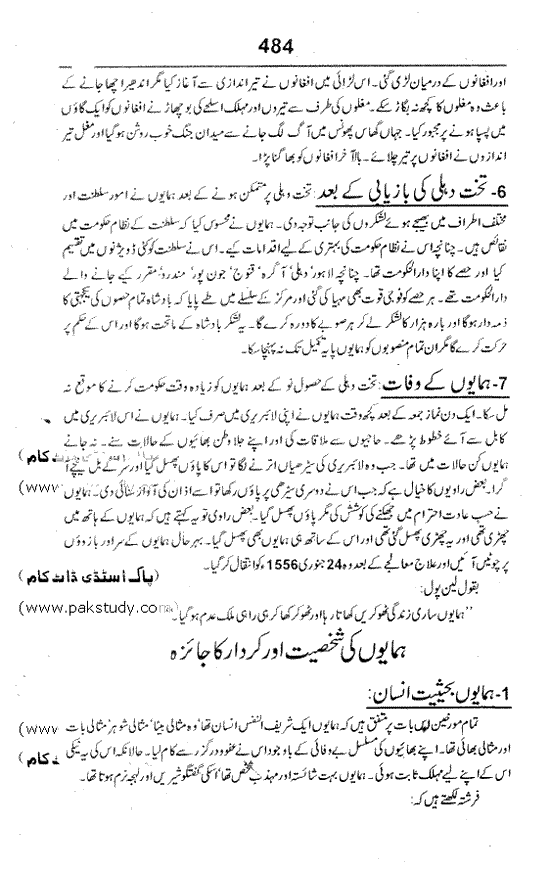 484
اور افغانوں کے درمیان لڑی گئی۔ اس لڑائی میں افغانوں نے تیر اندازی سے آغاز کیا مگر اندھیرا چھا جانے کے
باعث وہ مغلوں کا کچھ نہ بگاڑ سکے۔ مغلوں کی طرف سے تیروں اور مہلک اسلحے کی بوچھاڑ نے افغانوں کو ایک گاؤں
میں پسپا ہونے پر مجبور کیا۔ جہاں گھاس پھونس میں آگ لگ جانے سے میدان جنگ خوب روشن ہو گیا اور مغل تیر
اندازوں نے افغانوں پر تیر چلائے۔ بالآخر افغانوں کو بھاگنا پڑا۔
6- تخت دہلی کی بازیابی کے بعد: تخت دہلی پر متمکن ہونے کے بعد ہمایوں نے امور سلطنت اور
مختلف اطراف میں بھیجے ہوئے لشکروں کی جانب توجہ دی۔ ہمایوں نے محسوس کیا کہ سلطنت کے نظام حکومت میں
نقائص ہیں۔ چنانچہ اس نے نظام حکومت کی بہتری کے لیے اقدامات کیے۔ اس نے سلطنت کو کئی ڈویژنوں میں تقسیم
کیا اور حصے کا اپنا دارالحکومت تھا۔ چنانچہ لاہور، دہلی، آگرہ، قنوج، جون پور، مندرو، مقرر کیے جانے والے
دارالحکومت تھے۔ ہر حصے کو فوجی قوت بھی مہیا کی گئی اور مرکز کے سلسلے میں طے پایا کہ بادشاہ تمام حصوں کی یکجہتی کا
ذمہ دار ہوگا اور بارہ ہزار کا لشکر لے کر ہر صوبے کا دورہ کرے گا۔ یہ لشکر بادشاہ کے ماتحت ہوگا اور اس کے حکم پر
حرکت کرے گا مگر ان تمام منصوبوں کو ہمایوں پایہ تکمیل تک نہ پہنچا سکا۔
7- ہمایوں کے وفات: تخت دہلی کے حصول نو کے بعد ہمایوں کو زیادہ وقت حکومت کرنے کا موقع نہ
مل سکا۔ ایک دن نماز جمعہ کے بعد کچھ وقت ہمایوں نے اپنی لائبریری میں صرف کیا۔ ہمایوں نے اس لائبریری میں
کابل سے آئے خطوط پڑھے۔ حاجیوں سے ملاقات کی اور اپنے جلاوطن بھائیوں کے حالات سنے۔ نہ جانے
ہمایوں کن حالات میں تھا۔ جب وہ لائبریری کی سیڑھیاں اترنے لگا تو اس کا پاؤں پھسل گیا اور سر کے بل نیچے آ
کام)
گرا۔ بعض راویوں کا خیال ہے کہ جب اس نے دوسری سیڑھی پر پاؤں رکھا تو اسے اذان کی آواز سنائی دی۔ ہمایوں
(www
نے حسب عادت احترام میں جھکنے کی کوشش کی مگر پاؤں پھسل گیا۔ بعض راوی تو یہ کہتے ہیں کہ ہمایوں کے ہاتھ میں
چھڑی تھی اور یہ چھڑی پھسل گئی تھی اور اس کے ساتھ ہی ہمایوں بھی پھسل گیا۔ بہرحال ہمایوں کے سر اور بازوؤں
پر چوٹیں آئیں اور علاج معالجے کے بعد وہ 24 جنوری 1556ء کو انتقال کر گیا۔
(پاک اسٹڈی ڈاٹ کام)
بقول لین پول:
(www.pakstudy.com)
’’ہمایوں ساری زندگی ٹھوکریں کھاتا رہا اور ٹھوکر کھا کر ہی راہی ملک عدم ہو گیا۔
ہمایوں کی شخصیت اور کردار کا جائزہ
1- ہمایوں بحیثیت انسان:
تمام مورخین اس بات پر متفق ہیں کہ ہمایوں ایک شریف النفس انسان تھا، وہ مثالی بیٹا، مثالی شوہر، مثالی باپ
(www
اور مثالی بھائی تھا۔ اپنے بھائیوں کی مسلسل بے وفائی کے باوجود اس نے عفو و درگزر سے کام لیا۔ حالانکہ اس کی یہ نیکی
کام)
اس کے اپنے لیے مہلک ثابت ہوئی۔ ہمایوں بہت شائستہ اور مہذب شخص تھا، اسکی گفتگو شیریں اور لہجہ نرم ہوتا تھا۔
فرشتہ لکھتے ہیں کہ: